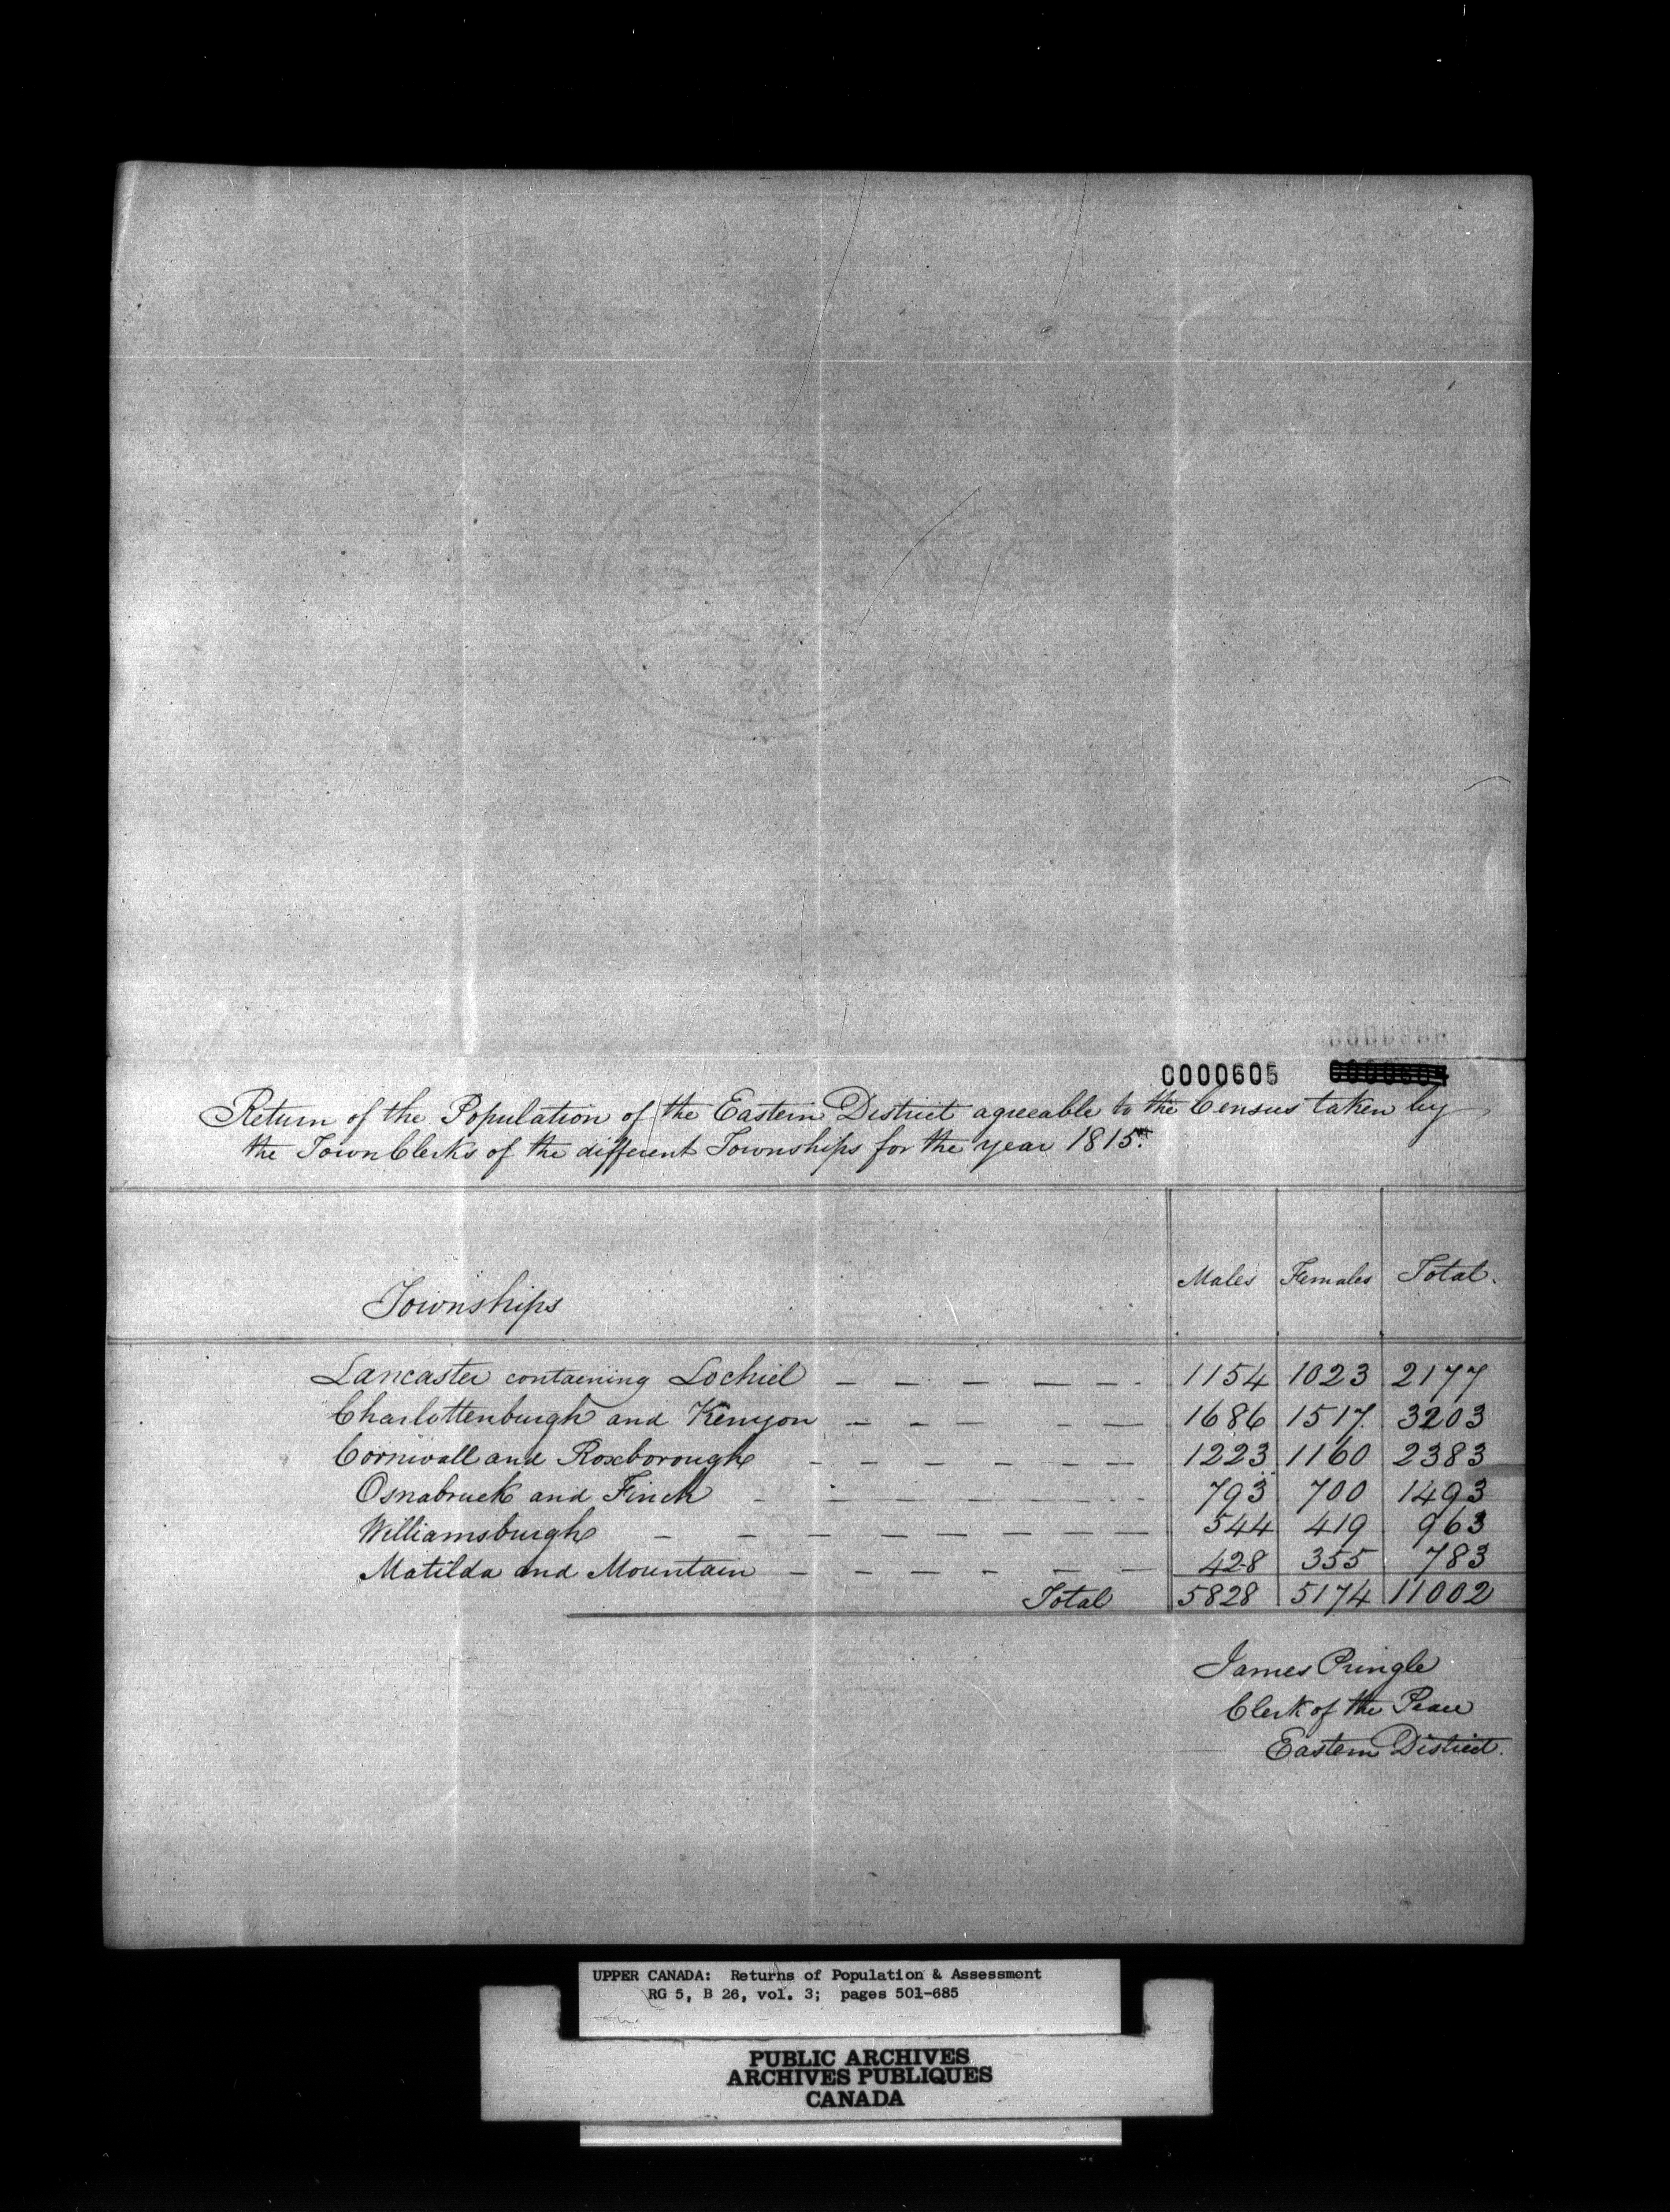 0000605
Return of the Population of the Eastern District agreeable to the Census taken by
the Town Clerks of the different Townships for the year 1815.
Townships Males Females Total.
Lancaster containing Lochiel 1154 1023 2177
Charlottenburgh and Kenyon 1686 1517 3203
Cornwall and Roxborough 1223 1160 2383
Osnabruck and Finch 793 700 1493
Williamsburgh 544 419 963
Matilda and Mountain 428 355 783
Total 5828 5174 11002
James Pringle
Clerk of the Peace
Eastern District.
UPPER CANADA: Returns of Population & Assessment
RG 5, B 26, vol. 3; pages 501-685
PUBLIC ARCHIVES
ARCHIVES PUBLIQUES
CANADA